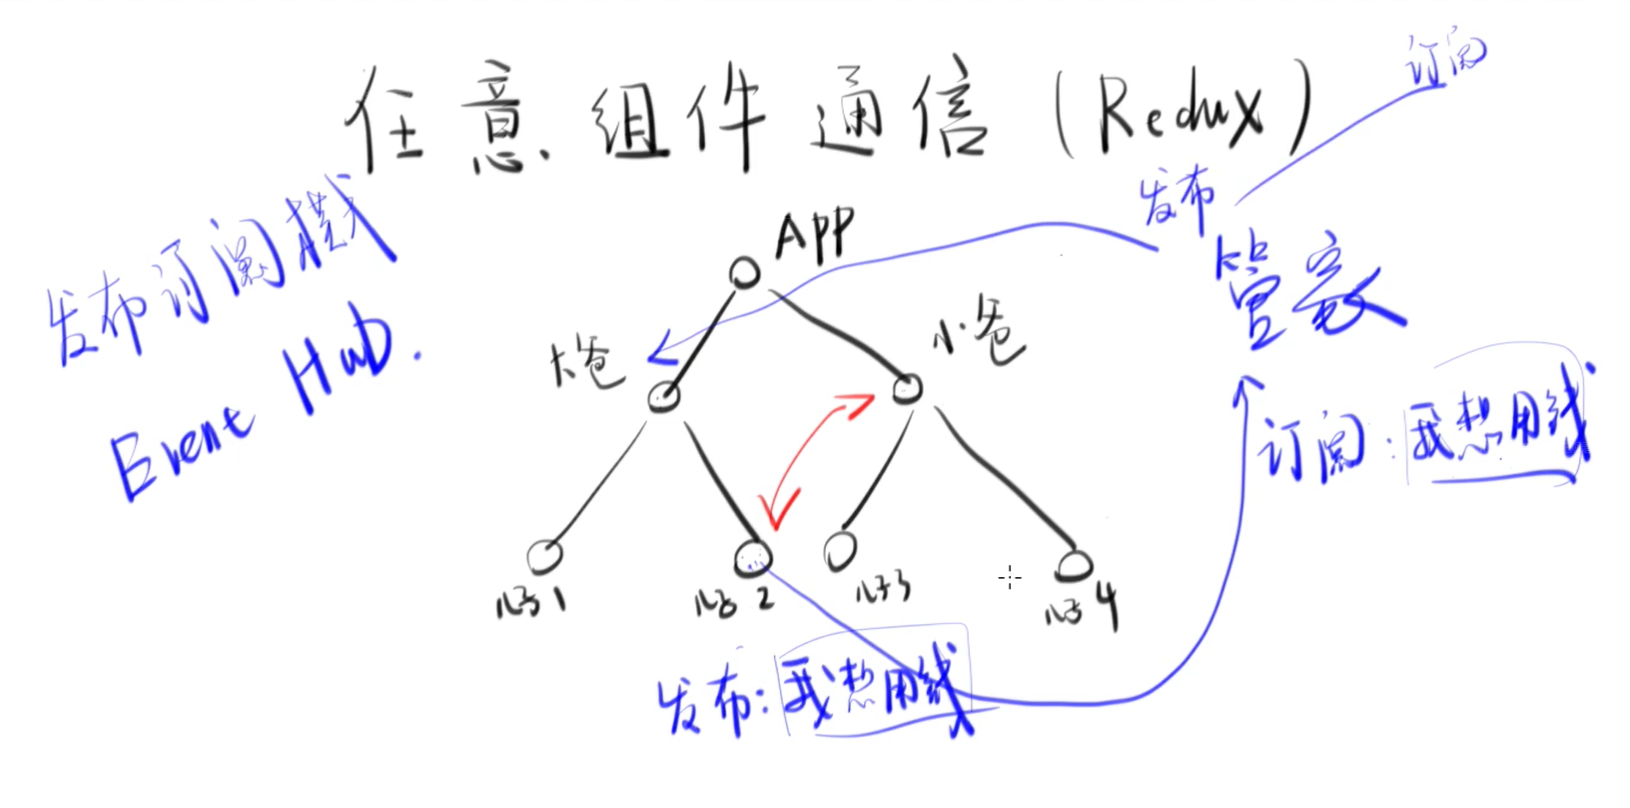 任意组件通信(Redux)
订阅
发布
发布订阅模式
Event Hub.
APP
管家
大爸
小爸
订阅:我想用钱
儿子1
儿子2
儿子3
儿子4
发布:我想用钱